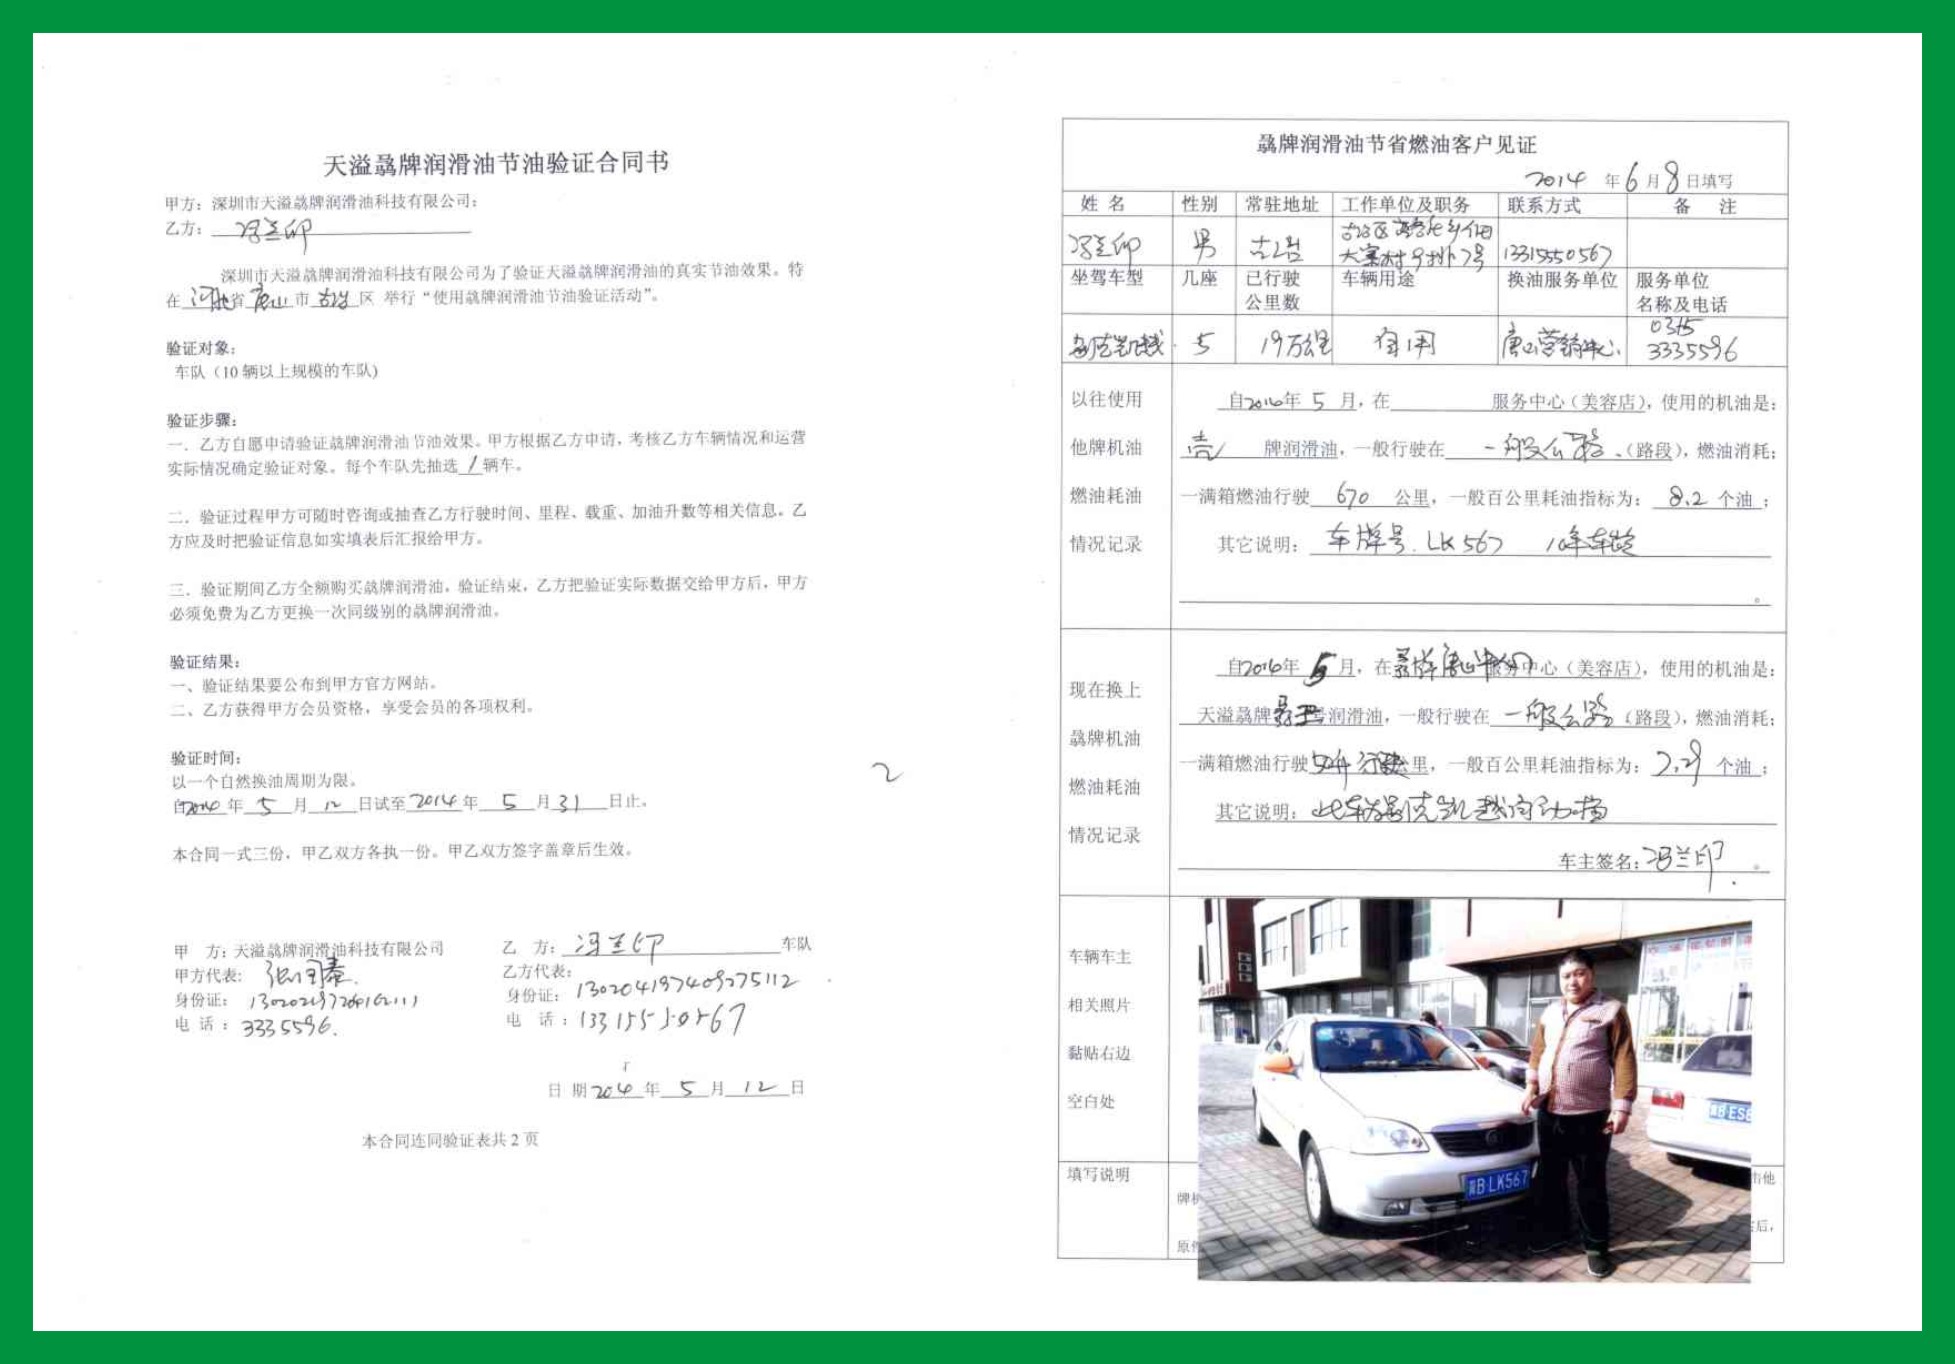 天溢骉牌润滑油节油验证合同书
甲方：深圳市天溢骉牌润滑油科技有限公司；
乙方：冯兰印
深圳市天溢骉牌润滑油科技有限公司为了验证天溢骉牌润滑油的真实节油效果。特
在 河北 省 唐山 市 古冶 区 举行“使用骉牌润滑油节油验证活动”。
验证对象：
车队（10 辆以上规模的车队)
验证步骤：
一．乙方自愿申请验证骉牌润滑油节油效果。甲方根据乙方申请，考核乙方车辆情况和运营
实际情况确定验证对象。每个车队先抽选 1 辆车。
二．验证过程甲方可随时咨询或抽查乙方行驶时间、里程、载重、加油升数等相关信息。乙
方应及时把验证信息如实填表后汇报给甲方。
三．验证期间乙方全额购买骉牌润滑油。验证结束，乙方把验证实际数据交给甲方后，甲方
必须免费为乙方更换一次同级别的骉牌润滑油。
验证结果：
一、验证结果要公布到甲方官方网站。
二、乙方获得甲方会员资格，享受会员的各项权利。
验证时间：
以一个自然换油周期为限。
自2014 年 5 月 12 日试至 2014 年 5 月 31 日止。
本合同一式三份，甲乙双方各执一份。甲乙双方签字盖章后生效。
甲 方：天溢骉牌润滑油科技有限公司
甲方代表：
身份证：
电 话：3335596.
乙 方：冯兰印 车队
乙方代表：
身份证：130204197409275112
电 话：13315550567
日 期 2014 年 5 月 12 日
本合同连同验证表共 2 页
2
骉牌润滑油节省燃油客户见证
2014 年 6 月 8 日填写
姓 名 性别 常驻地址 工作单位及职务 联系方式 备 注
冯兰印 男 古冶 大寨村9排7号 13315550567
坐驾车型 几座 已行驶公里数 车辆用途 换油服务单位 服务单位名称及电话
别克凯越 5 19万公里 自用 唐山营销中心 0315 3335596
以往使用他牌机油燃油耗油情况记录
自2014年 5 月，在 服务中心（美容店），使用的机油是：
壳 牌润滑油，一般行驶在 一般公路 （路段），燃油消耗：
一满箱燃油行驶 670 公里，一般百公里耗油指标为： 8.2 个油；
其它说明： 车牌号. LK567 10年车龄
。
现在换上骉牌机油燃油耗油情况记录
自2014年 5 月，在骉牌唐山 服务中心（美容店），使用的机油是：
天溢骉牌 润滑油，一般行驶在 一般公路 （路段），燃油消耗：
一满箱燃油行驶 公里，一般百公里耗油指标为： 7.9 个油；
其它说明： 此车为别克凯越自动档
车主签名：冯兰印 。
车辆车主相关照片黏贴右边空白处
冀B LK567
冀B ES6
填写说明
牌机
原件